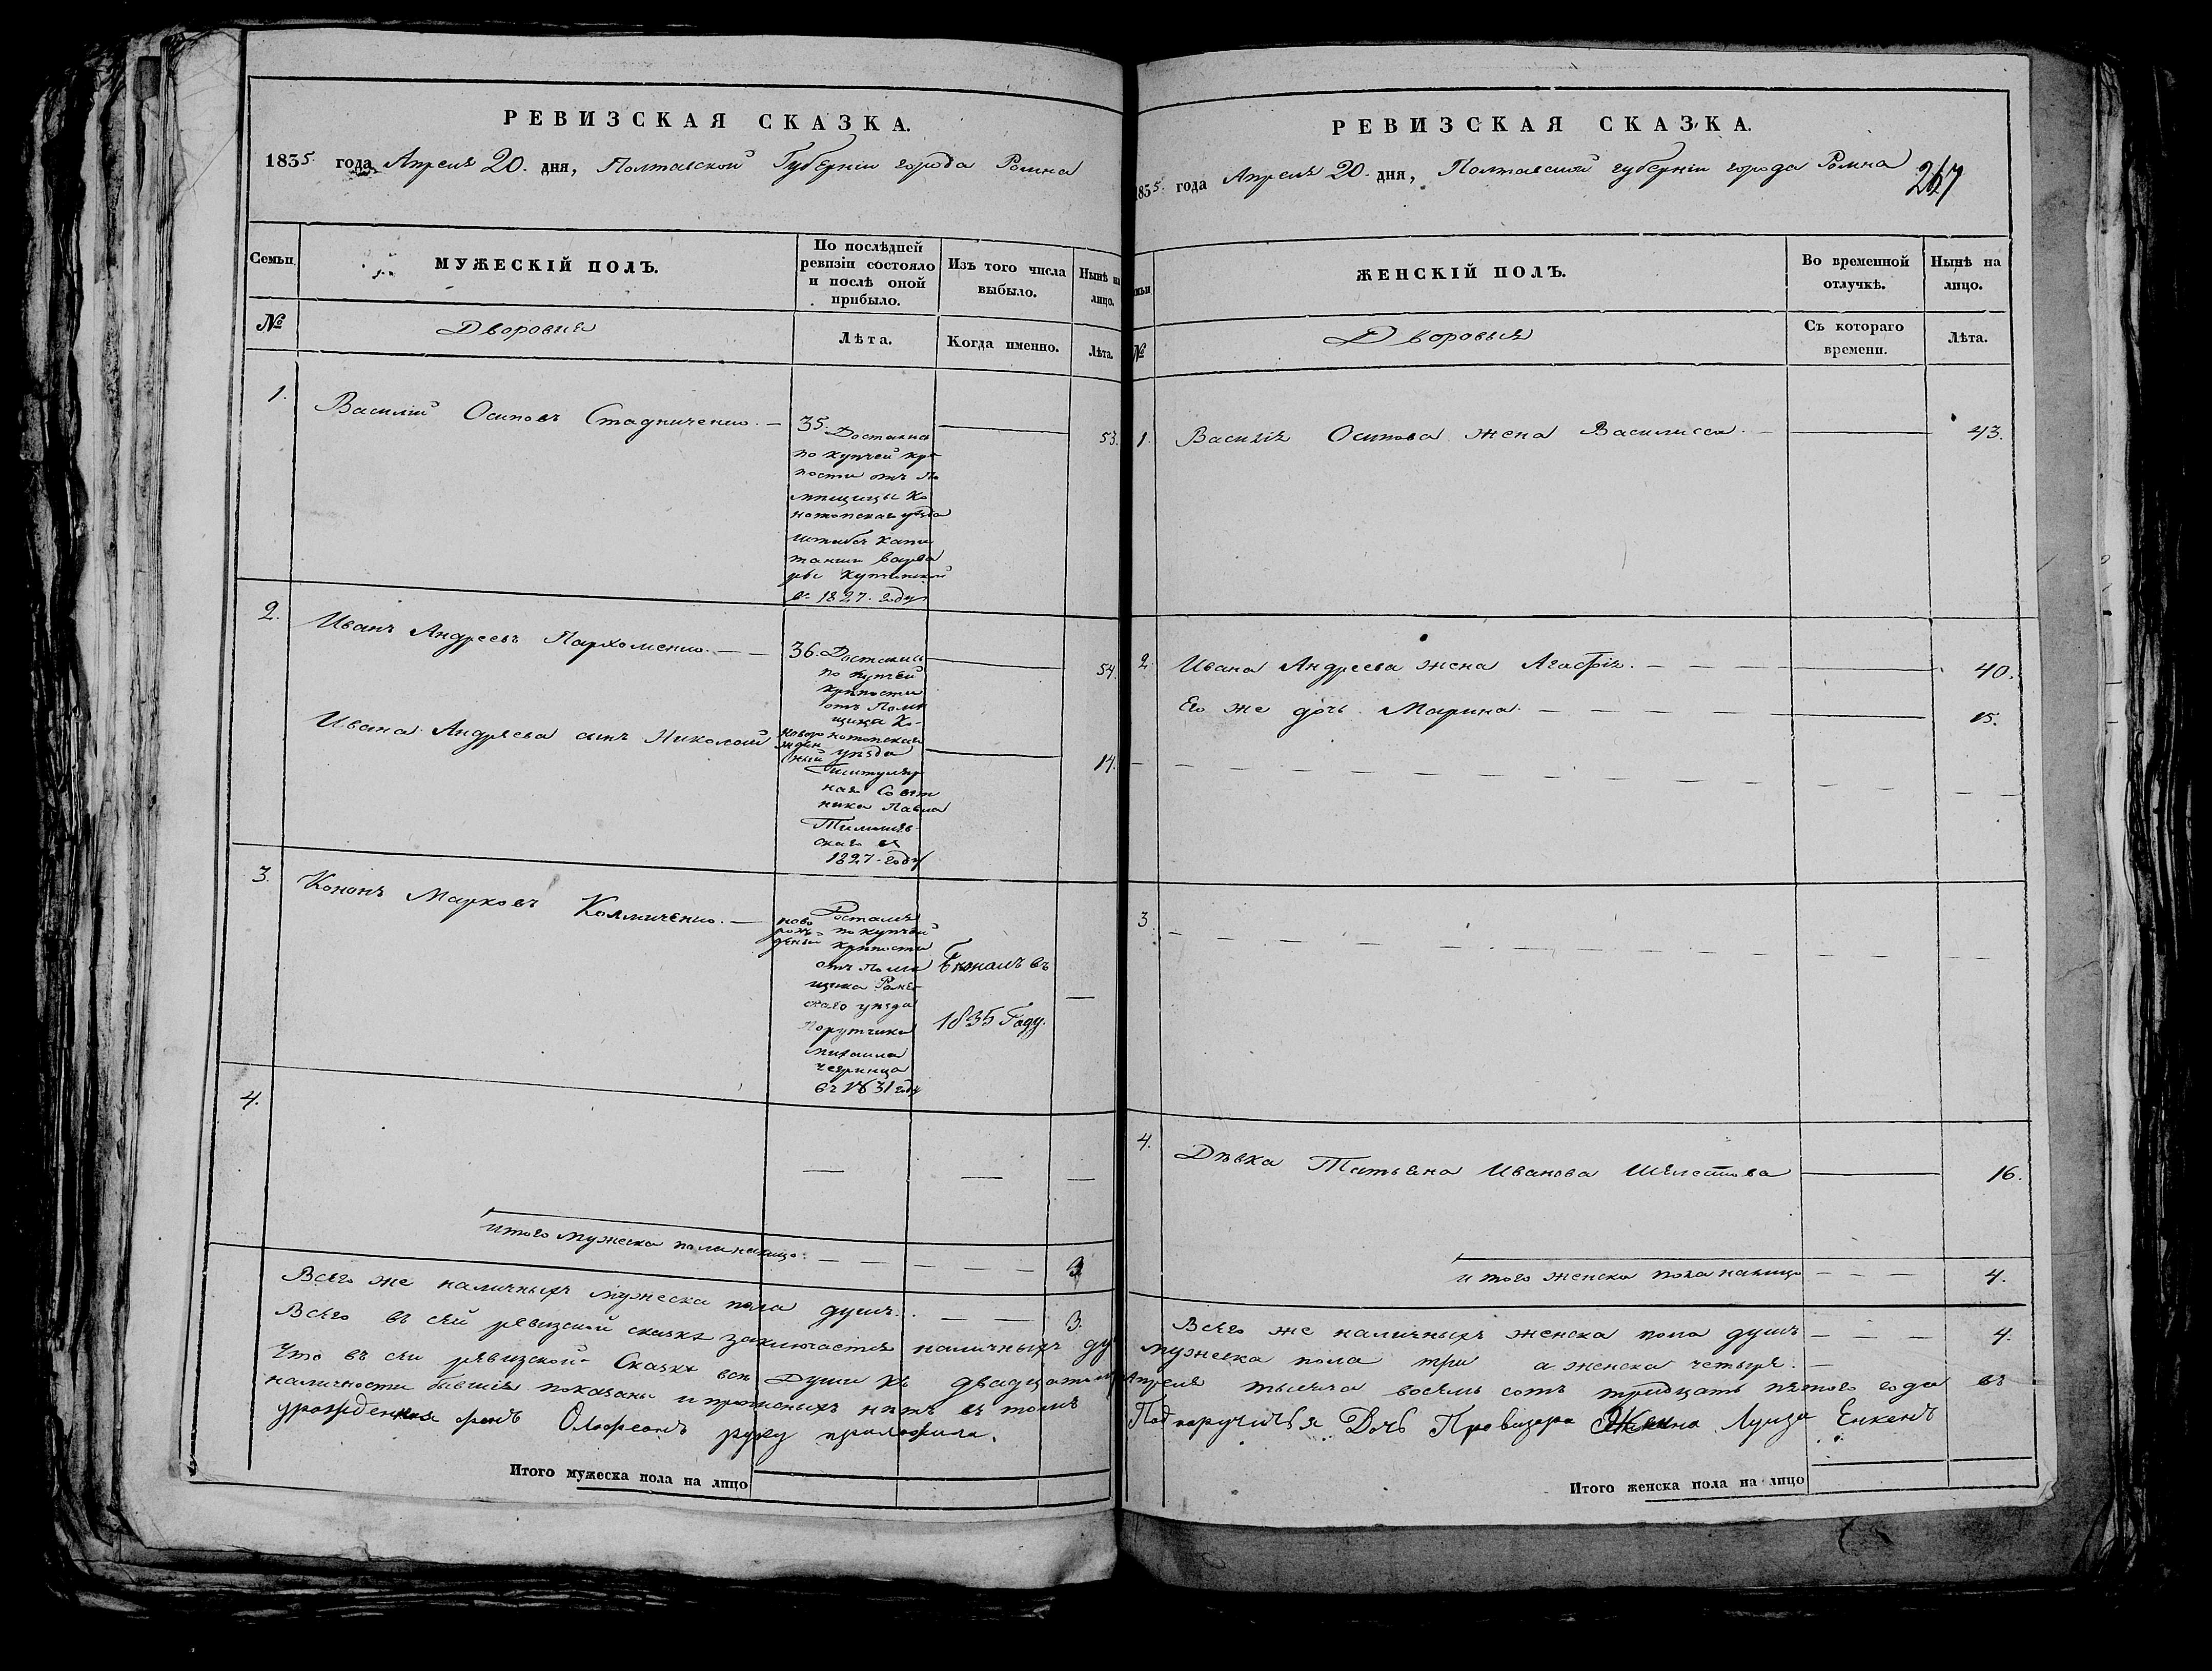 РЕВИЗСКАЯ СКАЗКА.
1835. года Апреля 20. дня, Полтавской Губернiи города Ромна
Семьи
МУЖЕСКIЙ ПОЛЪ.
По послѣдней ревизiи состояло и послѣ оной прибыло.
Изъ того числа выбыло.
Нынѣ на лицо.
№
Дворовыя
Лѣта.
Когда именно.
Лѣта.
1.
Василiй Осиповъ Стадниченко. —
35.
Достался
по купчей крѣ
пости отъ По
мѣщицы Ко
нотопскаго уѣзда
штабсъ капи
танши Варва
ры
въ 1827. году
53.
2.
Иванъ Андреевъ Пархоменко. — —
36. Достались
по купчей
крѣпости
отъ Помѣ
щика Ко-
нотопскаго
уѣзда
Титуляр
наго Совѣт
ника Павла
скаго въ
1827. году
54.
Ивана Андреева сынъ Николай
новоро
жден
ный
14.
3.
Кононъ Марковъ —
ново
рож-
денный
Достался
по купчей
крѣпости
отъ Помѣ
щика Ромен
скаго уѣзда
Порутчика
Михаила
въ 1831 году
Бѣжалъ въ
1835 Году.
—
4.
— — —
итого мужеска пола налицо. — — — — — 3
Всего же наличныхъ мужеска пола душъ. — — — 3.
Всего въ сей ревизской сказкѣ заключается наличныхъ ду
Что въ сей ревизской Сказкѣ всѣ Души къ двадцатому
наличности бывшiя показаны и прописныхъ нѣтъ въ томъ
урожденная фонъ руку приложила.
Итого мужеска пола на лицо
РЕВИЗСКАЯ СКАЗКА.
1835. года Апреля 20. дня, Полтавской губернiи города Ромна
267
ЖЕНСКIЙ ПОЛЪ.
Во временной отлучкѣ.
Нынѣ на лицо.
№
Дворовыя
Съ котораго времени.
Лѣта.
1. Василiя Осипова жена Василисса. — 43.
2. Ивана Андреева жена Агафiя. — — — — 40.
Его же дочь Марина. — — — — 15.
3
4.
Дѣвка Татьяна Иванова Шелестова — 16.
итого женска пола налицо — — — 4.
Всего же наличныхъ женска пола душъ — — — 4.
мужеска пола три а женска четыре. —
Апреля тысяча восемь сотъ тридцать пятого года въ
Дочь Провизора Жена Луиза Енкенъ
Итого женска пола на лицо